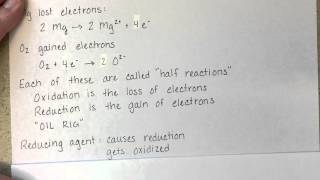 lost electrons:
2 Mg → 2 Mg²⁺ + 4 e⁻
O₂ gained electrons
O₂ + 4 e⁻ → 2 O²⁻
Each of these are called "half reactions"
Oxidation is the loss of electrons
Reduction is the gain of electrons
"OIL RIG"
Reducing agent: causes reduction
gets oxidized